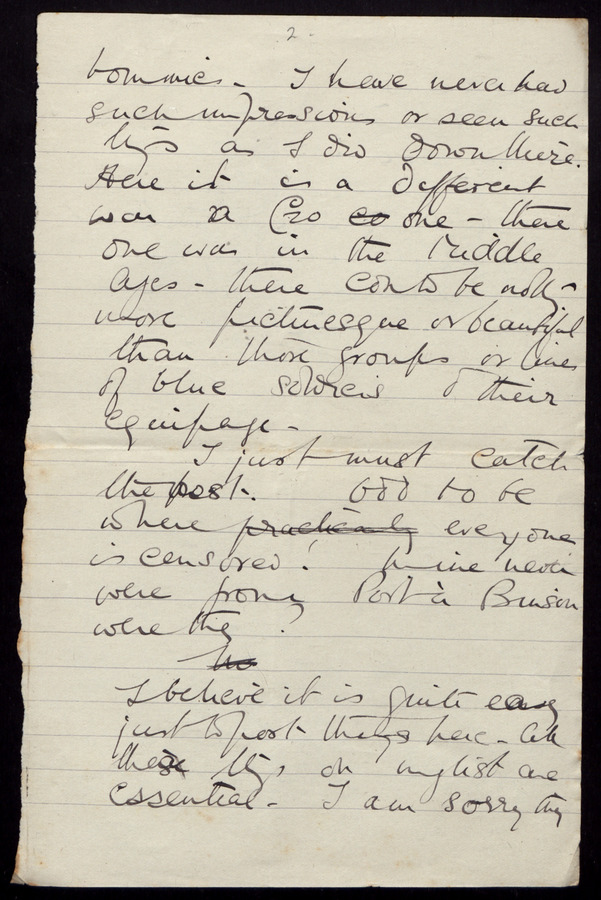 2.
tommies - I have never had
such impressions or seen such
as I did down there.
Here it is a different
war a one - there
one was in the Middle
Ages - there could be nothg
more picturesque or beautiful
than those groups or lines
of blue soldiers & their
equipage -
I just must catch
the post. Odd to be
where practically everyone
is censored! Mine never
were from Port à Binson
were they?
No
I believe it is quite easy
just to post things here - All
these on my list are
essential - I am sorry they